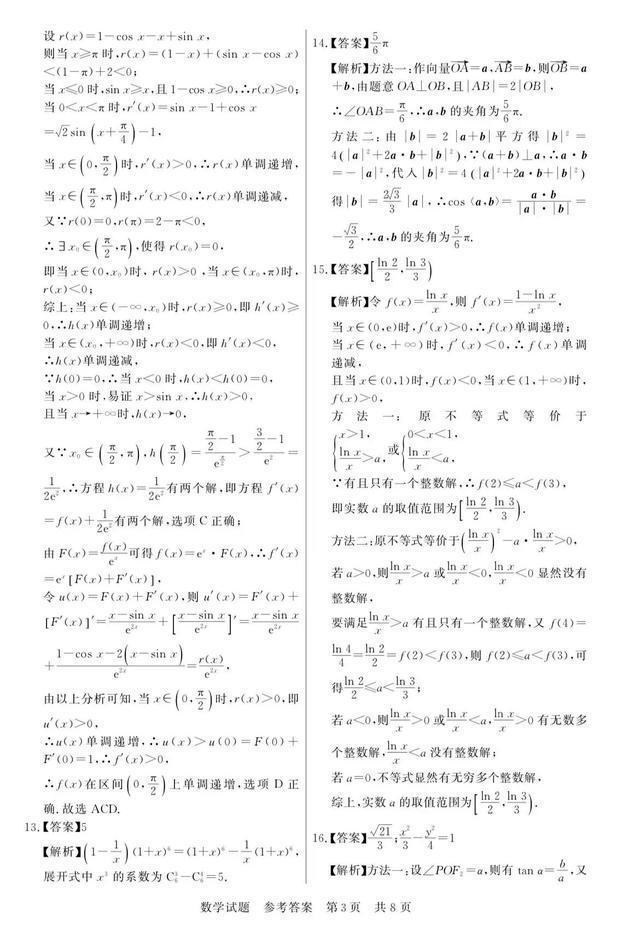 设 r(x)=1-cos x-x+sin x,
则当 x≥π 时,r(x)=(1-x)+(sin x-cos x)
<(1-π)+2<0;
当 x≤0 时,sin x≥x,且 1-cos x≥0,∴r(x)≥0;
当 0<x<π 时,r′(x)=sin x-1+cos x
=√2 sin(x+π/4)-1,
当 x∈(0,π/2)时,r′(x)>0,∴r(x)单调递增,
当 x∈(π/2,π)时,r′(x)<0,∴r(x)单调递减,
又∵r(0)=0,r(π)=2-π<0,
∴∃x₀∈(π/2,π),使得 r(x₀)=0,
即当 x∈(0,x₀)时, r(x)>0 ,当 x∈(x₀,π)时,
r(x)<0;
综上:当 x∈(-∞,x₀)时,r(x)≥0,即 h′(x)≥
0,∴h(x)单调递增;
当 x∈(x₀,+∞)时,r(x)<0,即 h′(x)<0,
∴h(x)单调递减,
∵h(0)=0,∴当 x<0 时,h(x)<h(0)=0,
当 x>0 时,易证 x>sin x,∴h(x)>0,
且当 x→+∞时,h(x)→0,
又∵x₀∈(π/2,π),h(π/2)=(π/2-1)/e^(π/2)>(3/2-1)/e²=
1/2e²,∴方程 h(x)=1/2e²有两个解,即方程 f′(x)
=f(x)+1/2e²有两个解,选项 C 正确;
由 F(x)=f(x)/eˣ可得 f(x)=eˣ·F(x),∴f′(x)
=eˣ[F(x)+F′(x)],
令 u(x)=F(x)+F′(x),则 u′(x)=F′(x)+
[F′(x)]′=(x-sin x)/e²ˣ+[(x-sin x)/e²ˣ]′=(x-sin x)/e²ˣ
+(1-cos x-2(x-sin x))/e²ˣ=r(x)/e²ˣ,
由以上分析可知,当 x∈(0,π/2)时,r(x)>0,即
u′(x)>0,
∴u(x)单调递增,∴u(x)>u(0)=F(0)+
F′(0)=1,∴f′(x)>0,
∴f(x)在区间(0,π/2)上单调递增,选项 D 正
确.故选 ACD.
13.【答案】5
【解析】(1-1/x)(1+x)⁶=(1+x)⁶-1/x(1+x)⁶,
展开式中 x³ 的系数为 C₆³-C₆⁴=5.
14.【答案】5/6π
【解析】方法一:作向量OA=a,AB=b,则OB=a
+b,由题意 OA⊥OB,且|AB|=2|OB|,
∴∠OAB=π/6,∴a,b 的夹角为5/6π.
方法二:由|b|=2|a+b|平方得|b|²=
4(|a|²+2a·b+|b|²),∵(a+b)⊥a,∴a·b
=-|a|²,代入|b|²=4(|a|²+2a·b+|b|²)
得|b|=2√3/3|a|,∴cos⟨a,b⟩=a·b/(|a|·|b|)=
-√3/2,∴a,b 的夹角为5/6π.
15.【答案】[ln 2/2,ln 3/3)
【解析】令 f(x)=ln x/x,则 f′(x)=(1-ln x)/x²,
当 x∈(0,e)时,f′(x)>0,∴f(x)单调递增;
当 x∈(e,+∞)时,f′(x)<0,∴f(x)单调
递减,
且当 x∈(0,1)时,f(x)<0,当 x∈(1,+∞)时,
f(x)>0,
方法一:原不等式等价于
{x>1, ln x/x>a,或{0<x<1, ln x/x<a,
∵有且只有一个整数解,∴f(2)≤a<f(3),
即实数 a 的取值范围为[ln 2/2,ln 3/3).
方法二:原不等式等价于(ln x/x)²-a·ln x/x>0,
若 a>0,则ln x/x>a 或ln x/x<0,ln x/x<0 显然没有
整数解,
要满足ln x/x>a 有且只有一个整数解,又 f(4)=
ln 4/4=ln 2/2=f(2)<f(3),则 f(2)≤a<f(3),可
得ln 2/2≤a<ln 3/3;
若 a<0,则ln x/x>0 或ln x/x<a,ln x/x>0 有无数多
个整数解,ln x/x<a 没有整数解;
若 a=0,不等式显然有无穷多个整数解,
综上,实数 a 的取值范围为[ln 2/2,ln 3/3).
16.【答案】√21/3;x²/3-y²/4=1
【解析】方法一:设∠POF₂=α,则有 tan α=b/a,又
数学试题 参考答案 第3页 共8页